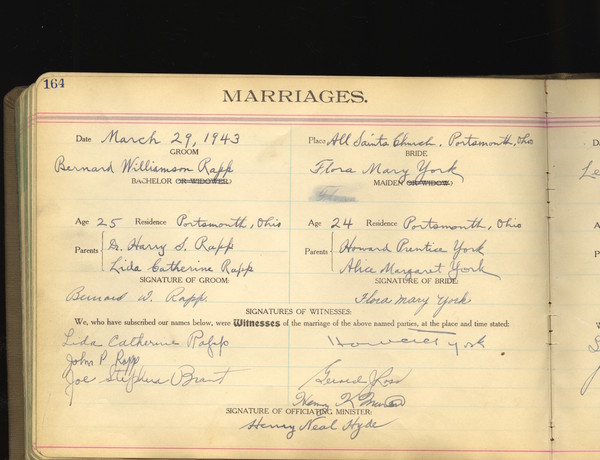 164
MARRIAGES.
Date March 29, 1943 Place All Saints Church, Portsmouth, Ohio
GROOM BRIDE
Bernard Williamson Rapp Flora Mary York
BACHELOR OR WIDOWER) MAIDEN OR WIDOW)
Age 25 Residence Portsmouth, Ohio Age 24 Residence Portsmouth, Ohio
Parents G. Harry S. Rapp Parents Howard Prentice York
Lida Catherine Rapp Alice Margaret York
SIGNATURE OF GROOM: SIGNATURE OF BRIDE:
Bernard W. Rapp Flora Mary York
SIGNATURES OF WITNESSES:
We, who have subscribed our names below, were Witnesses of the marriage of the above named parties, at the place and time stated:
Lida Catherine Rapp Howard York
John P Rapp
Joe Stephen Brant
Henry K
SIGNATURE OF OFFICIATING MINISTER:
Henry Neal Hyde